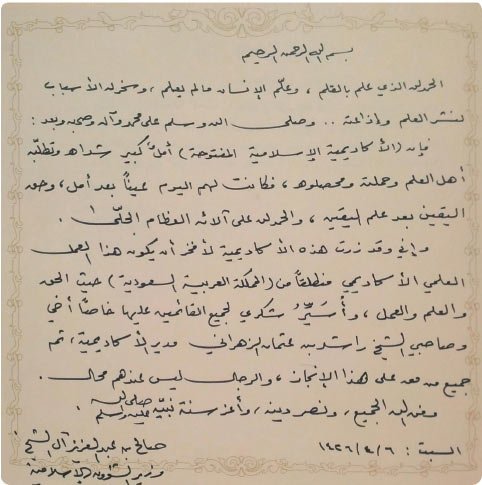 بسم الله الرحمن الرحيم
الحمد لله الذي علم بالقلم ، وعلّم الإنسان مالم يعلم ، وسخر له الأسباب
لنشر العلم وإذاعته .. وصلى الله وسلم على محمد وآله وصحبه وبعد :
فإن (الأكاديمية الإسلامية المفتوحة) أملٌ كبير شداه وتطلّبه
أهل العلم وحملته ومحصلوه ، فكانت لهم اليوم عيناً بعد أمل ، وحق
اليقين بعد علم اليقين ، والحمد لله على آلائه العظام الجلّى .
وإني وقد زرت هذه الأكاديمية لأفخر أن يكون هذا العمل
العلمي الأكاديمي منطلقاً من (المملكة العربية السعودية) حيث الحق
والعلم والعمل ، وأُسَيِّرُ شكري لجميع القائمين عليها خاصاً أخي
وصاحبي الشيخ راشد بن عثمان الزهراني مدير الأكاديمية ، ثم
جميع من معه على هذا الإنجاز ، والرجال ليس عندهم محال .
وفق الله الجميع ، ونصر دينه ، وأعز سنة نبيّه صلى الله عليه وسلم
السبت : ١٤٢٦/٤/٦ صالح بن عبدالعزيز آل الشيخ
وزير الشؤون الإسلامية